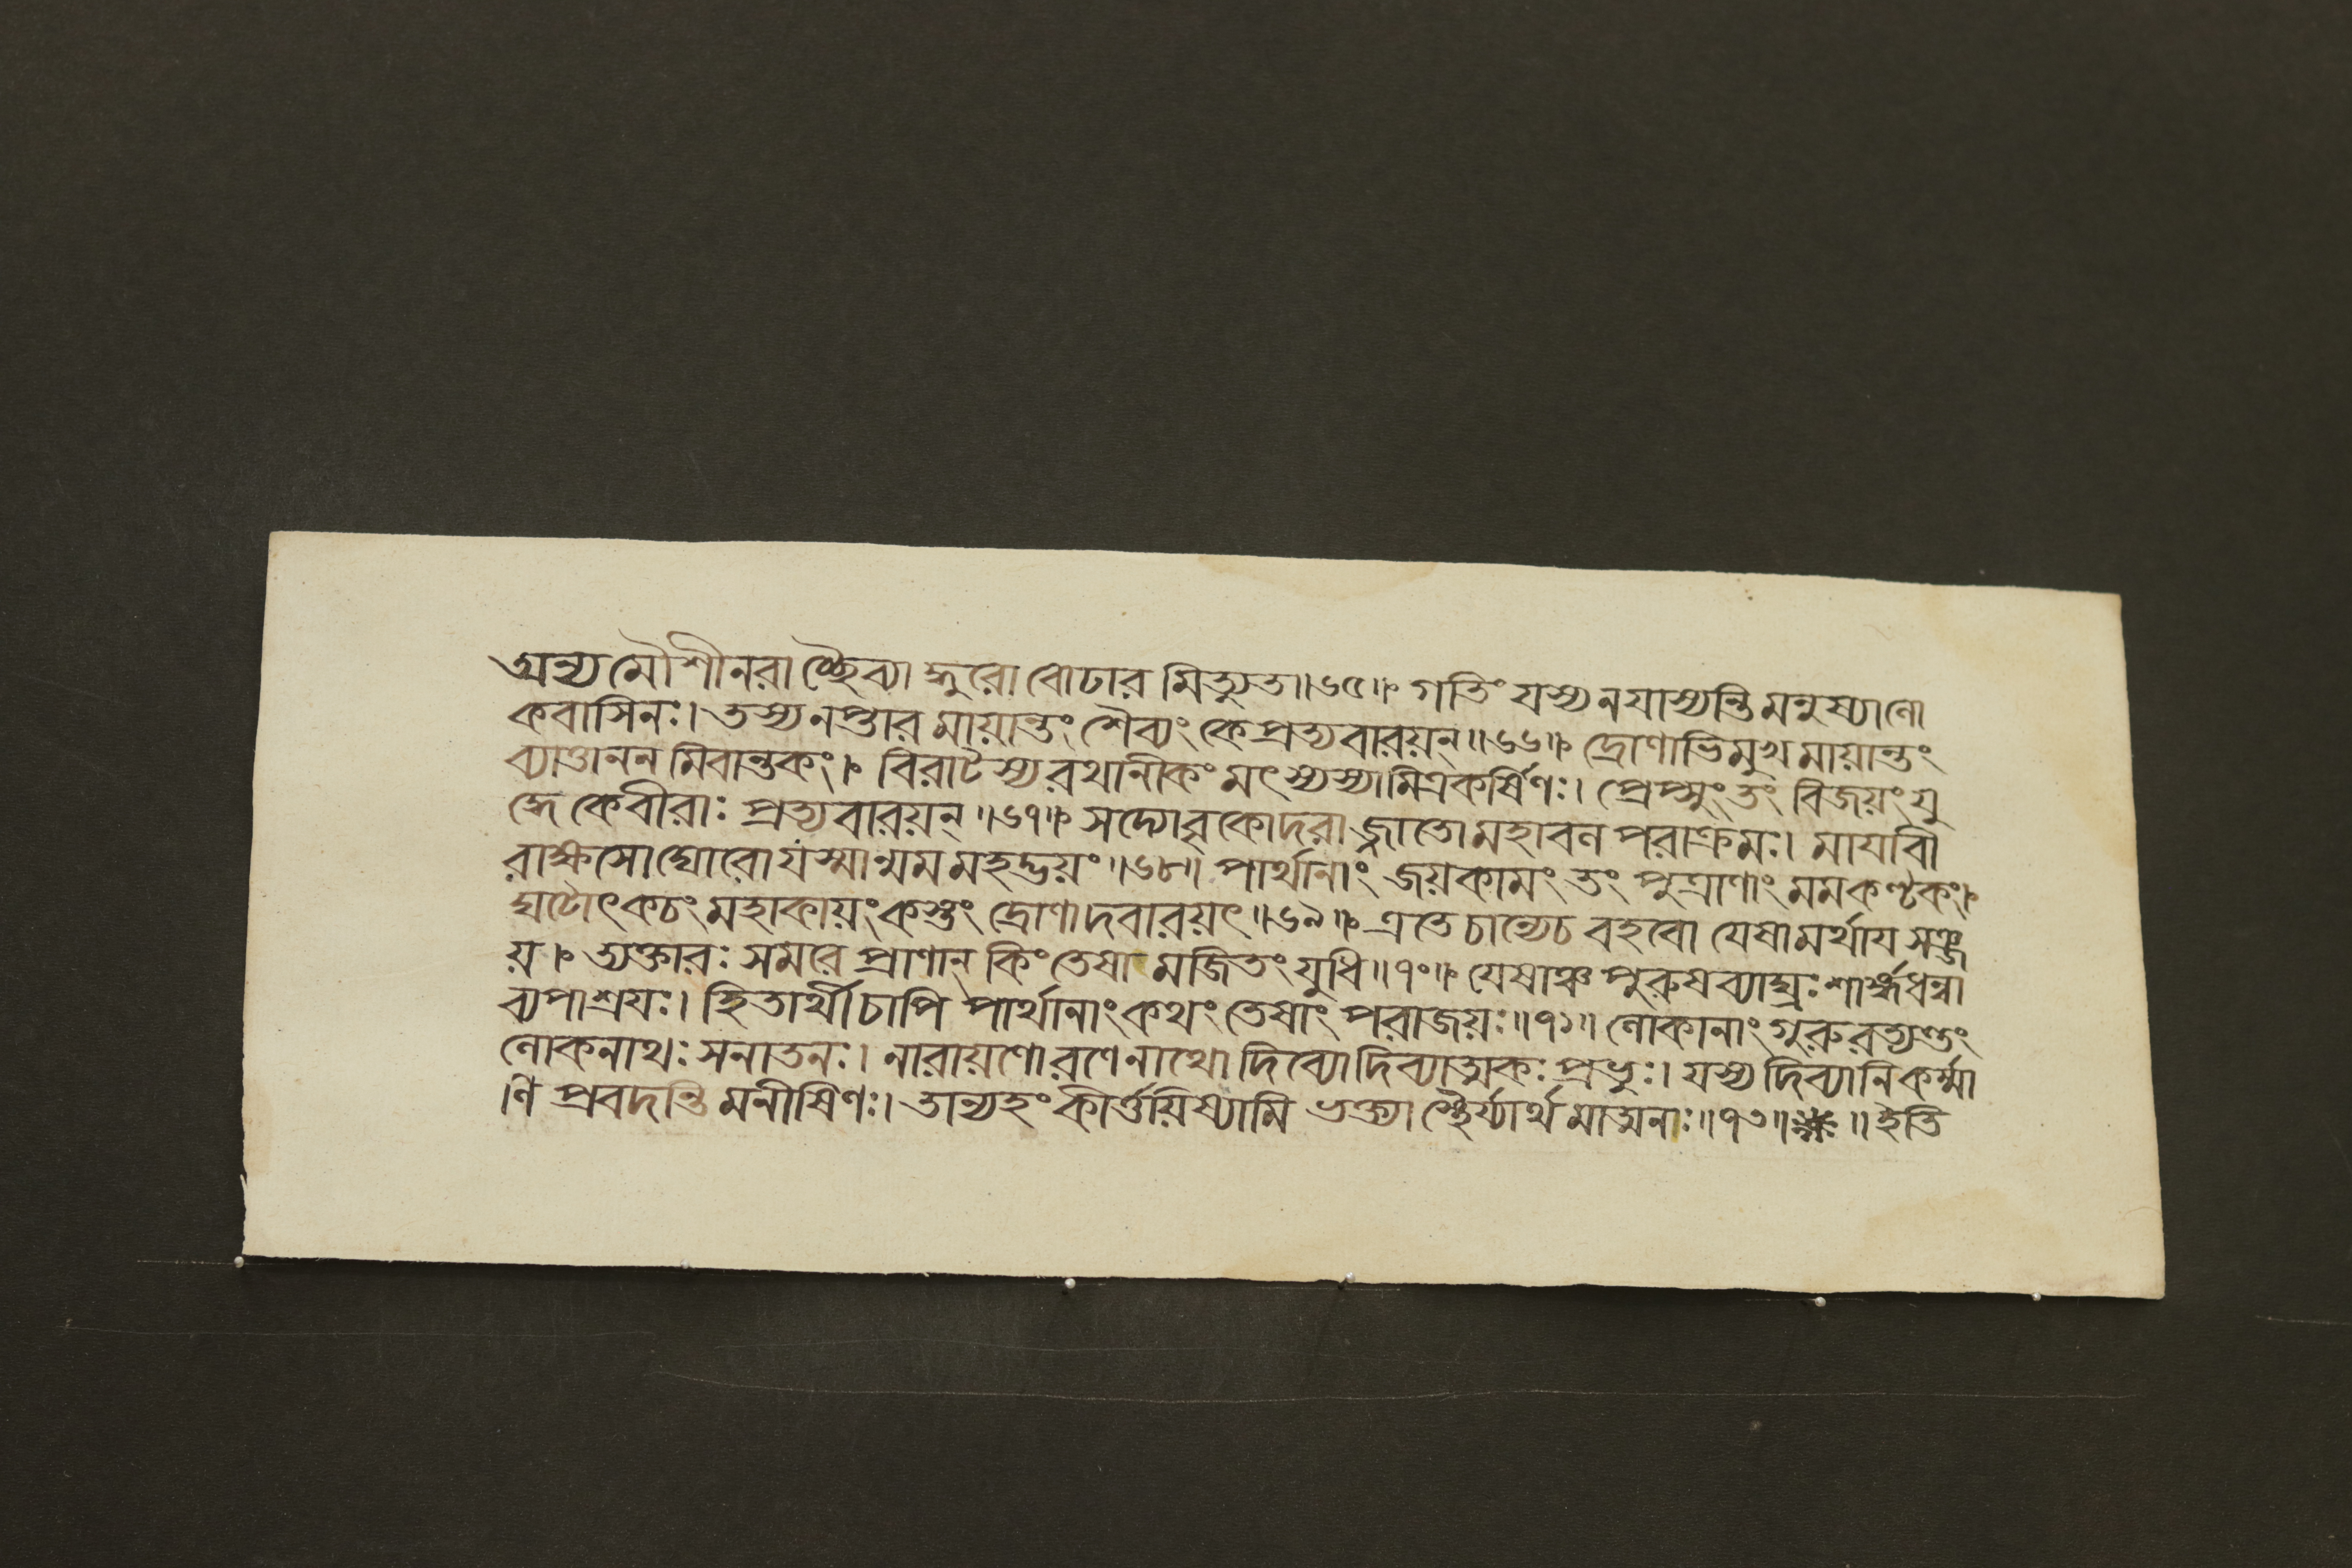 অন্য মৌশীনরাচ্ছৈব্যাদ্ধুরো বোঢার মিত্যুত॥৬৫॥ গতিং যস্য ন যাস্যন্তি মনুষ্যা লো
কবাসিনঃ। তস্য নপ্তার মায়ান্তং শৈব্যং কে প্রত্যবারয়ন্॥৬৬॥ দ্রোণাভিমুখ মায়ান্তং
ব্যাত্তানন মিবান্তকং। বিরাটস্য রথানীকং মৎস্যস্যামিত্রকর্ষিণঃ। প্রেপ্সুং তং বিজয়ং যু
দ্ধে কে বীরাঃ প্রত্যবারয়ন্॥৬৭॥ সদ্যো বৃকোদরাজ্জাতো মহাবল পরাক্রমঃ। মাযাবী
রাক্ষসো ঘোরো যস্মান্মম মহদ্ভয়ং॥৬৮॥ পার্থানাং জয়কামং তং পুত্রাণাং মম কণ্টকং।
ঘটোৎকচং মহাকায়ং কস্তং দ্রোণাদবারয়ৎ॥৬৯॥ এতে চান্যে চ বহবো যেষামর্থায সঞ্জ
য়। ত্যক্তারঃ সমরে প্রাণান্ কিং তেষা মজিতং যুধি॥৭০॥ যেষাঞ্চ পুরুষব্যাঘ্রঃ শার্ঙ্গধন্বা
ব্যপাশ্রযঃ। হিতার্থী চাপি পার্থানাং কথং তেষাং পরাজয়ঃ॥৭১॥ লোকানাং গুরুরত্যন্তং
লোকনাথঃ সনাতনঃ। নারায়ণো রণে নাথো দিব্যো দিব্যাত্মকঃ প্রভুঃ। যস্য দিব্যানি কর্ম্মা
ণি প্রবদন্তি মনীষিণঃ। তান্যহং কীর্ত্তয়িষ্যামি ভক্ত্যা স্থৈর্য্যার্থ মাত্মনাঃ॥৭৩॥ ॥ ইতি